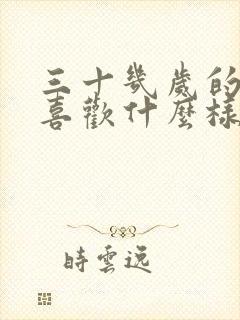 三十幾歲的
喜歡什麼樣
時雲逸